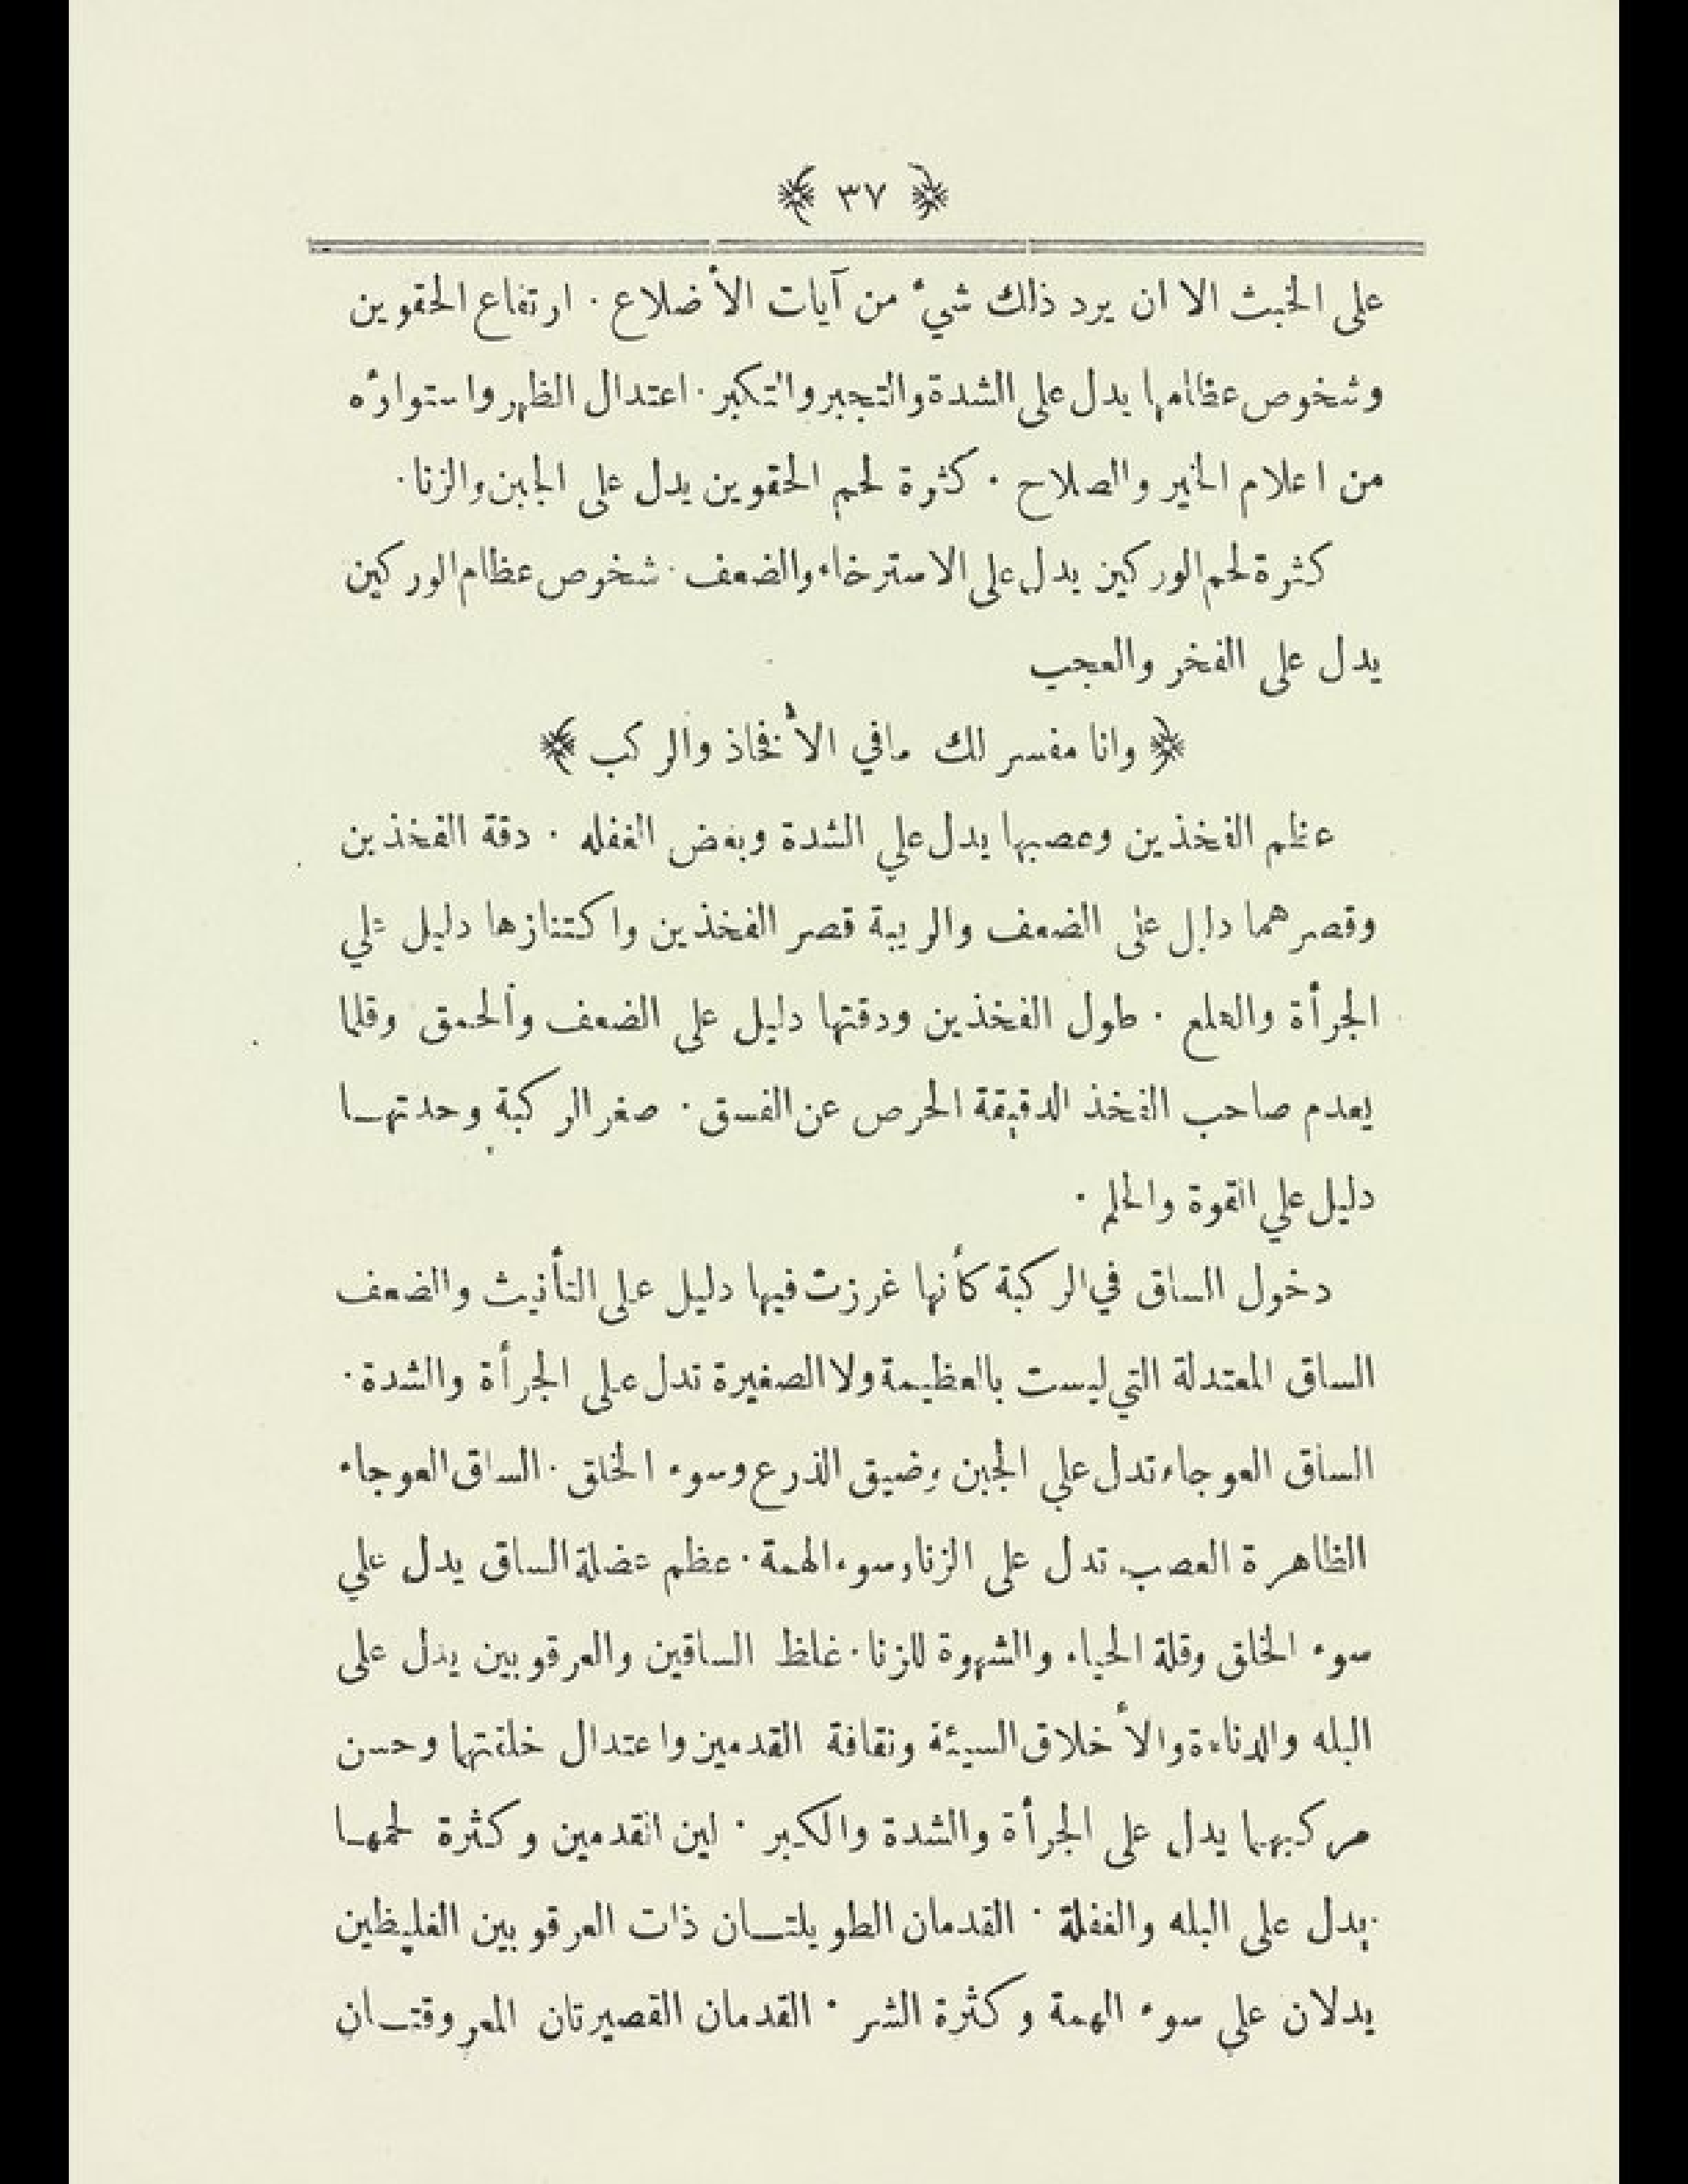 ﴿ ٣٧ ﴾
على الخبث الا ان يرد ذلك شيءٌ من آيات الأضلاع ٠ ارتفاع الحقوين
وشخوص عظامها يدل على الشدة والتجبر والتكبر ٠ اعتدال الظهر واستواؤه
من اعلام الخير والصلاح ٠ كثرة لحم الحقوين يدل على الجبن والزنا ٠
كثرة لحم الوركين يدل على الاسترخاء والضعف ٠ شخوص عظام الوركين
يدل على الفخر والعجب
﴿ وانا مفسر لك مافي الأفخاذ والركب ﴾
عظم الفخذين وعصبها يدل علي الشدة وبعض الغفله ٠ دقة الفخذين
وقصرهما دليل على الضعف والريبة قصر الفخذين واكتنازها دليل علي
الجرأة والهلع ٠ طول الفخذين ودقتها دليل على الضعف والحمق وقلما
يعدم صاحب الفخذ الدقيقة الحرص عن الفسق ٠ صغر الركبة وحدتهـا
دليل علي القوة والحلم ٠
دخول الساق في الركبة كأنها غرزت فيها دليل على التأنيث والضعف
الساق المعتدلة التي ليست بالعظيمة ولا الصغيرة تدل على الجرأة والشدة ٠
الساق العوجاء تدل علي الجبن وضيق الذرع وسوء الخلق ٠ الساق العوجاء
الظاهرة العصب تدل على الزنا وسوء الهمة ٠ عظم عضلة الساق يدل علي
سوء الخلق وقلة الحياء والشهوة للزنا ٠ غلظ الساقين والعرقوبين يدل على
البله والدناءة والأخلاق السيئة ونقافة القدمين واعتدال خلقتهما وحسن
مركبهما يدل على الجرأة والشدة والكبر ٠ لين القدمين وكثرة لحمهـا
يدل على البله والغفلة ٠ القدمان الطويلتـان ذات العرقوبين الغليظين
يدلان علي سوء الهمة وكثرة الشر ٠ القدمان القصيرتان المعروقتـان